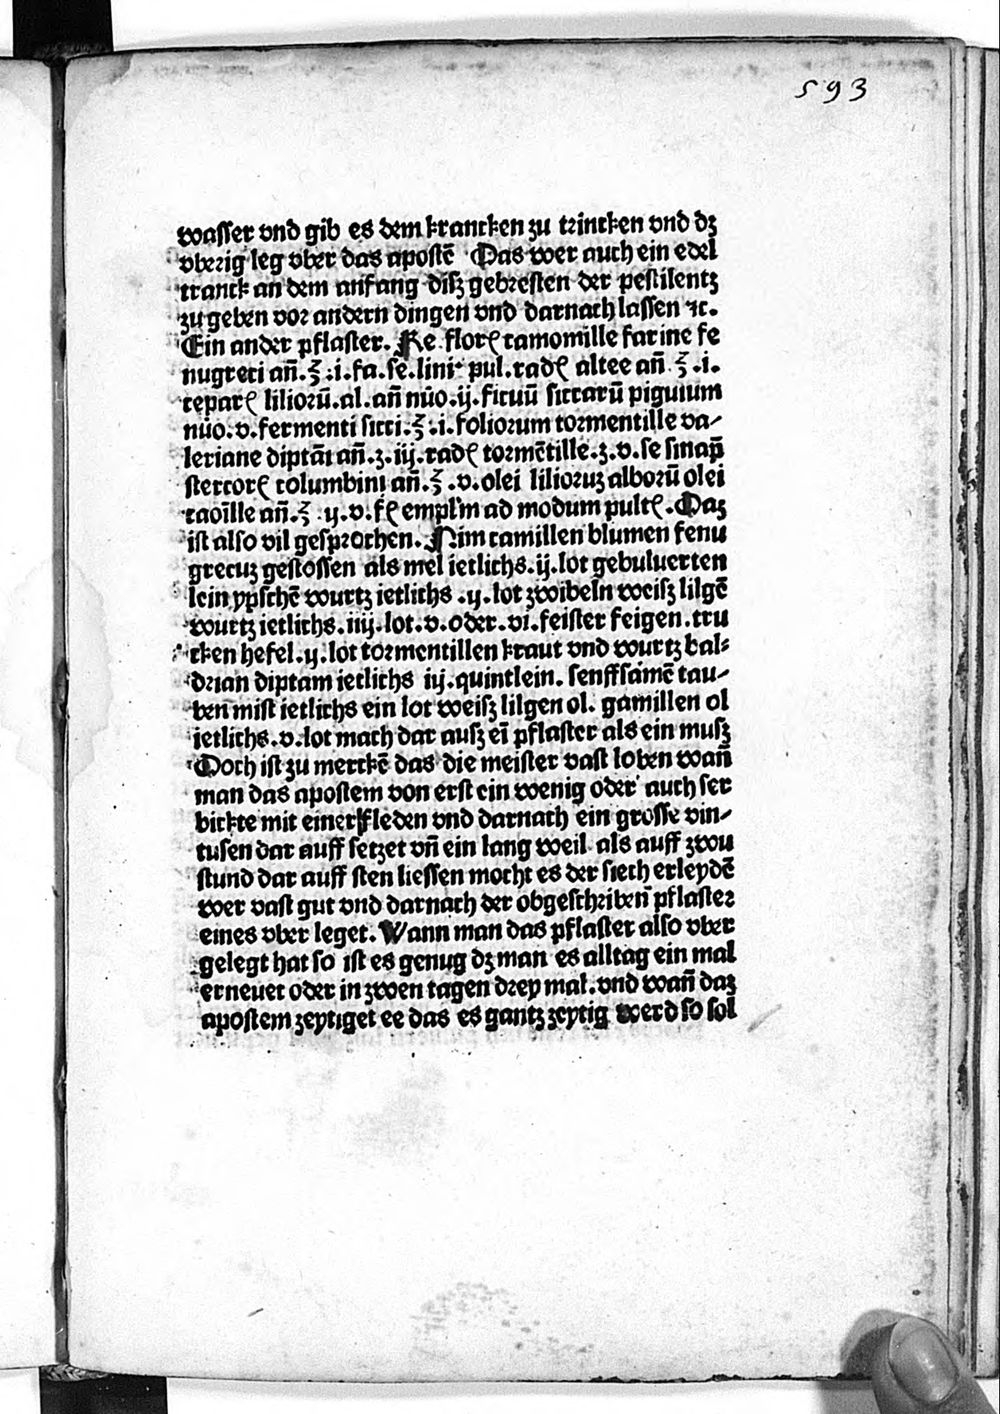 593
wasser vnd gib es dem krancken zu trincken vnd dz
vberig leg vber das apostē Das wer auch ein edel
tranck an dem anfang disz gebresten der pestilentz
zu geben vor andern dingen vnd darnach lassen ⁊c.
Ein ander pflaster. Re florꝭ camomille farine fe
nugreci añ.℥.i.fa.se.lini pul.radꝭ altee añ.℥.i.
ceparꝭ liliorū.al.añ nūo.ij.ficuū siccarū piguium
nūo.v.fermenti sicci.℥.i.foliorum tormentille va-
leriane diptāi añ.ʒ.iij.radꝭ tormētille.ʒ.v.se sinap̄
stercorꝭ columbini añ.℥.v.olei lilioruz alborū olei
caoīlle añ.℥.ij.v.fꝭ empl̄m ad modum pultꝭ.Daz
ist also vil gesprochen. Nim camillen blumen fenu
grecuz gestossen als mel ietlichs.ij.lot gebuluerten
lein ypschē wurtz ietlichs .ij.lot zwibeln weisz lilgē
wurtz ietlichs.iiij.lot.v.oder.vi.feister feigen.tru
cken hefel.ij.lot tormentillen kraut vnd wurtz bal-
drian diptam ietlichs iij.quintlein. senffsamē tau-
ben mist ietlichs ein lot weisz lilgen ol. gamillen ol
ietlichs.v.lot mach dar ausz eī pflaster als ein musz
Doch ist zu merckē das die meister vast loben wañ
man das apostem von erst ein wenig oder auch ser
bickte mit einer fleden vnd darnach ein grosse vin-
tusen dar auff setzet vñ ein lang weil als auff zwu
stund dar auff sten liessen mocht es der siech erleydē
wer vast gut vnd darnach der obgeschriben̄ pflaster
eines vber leget. Wann man das pflaster also vber
gelegt hat so ist es genug dz man es alltag ein mal
erneuet oder in zwen tagen drey mal.vnd wañ daz
apostem zeytiget ee das es gantz zeytig werd so sol